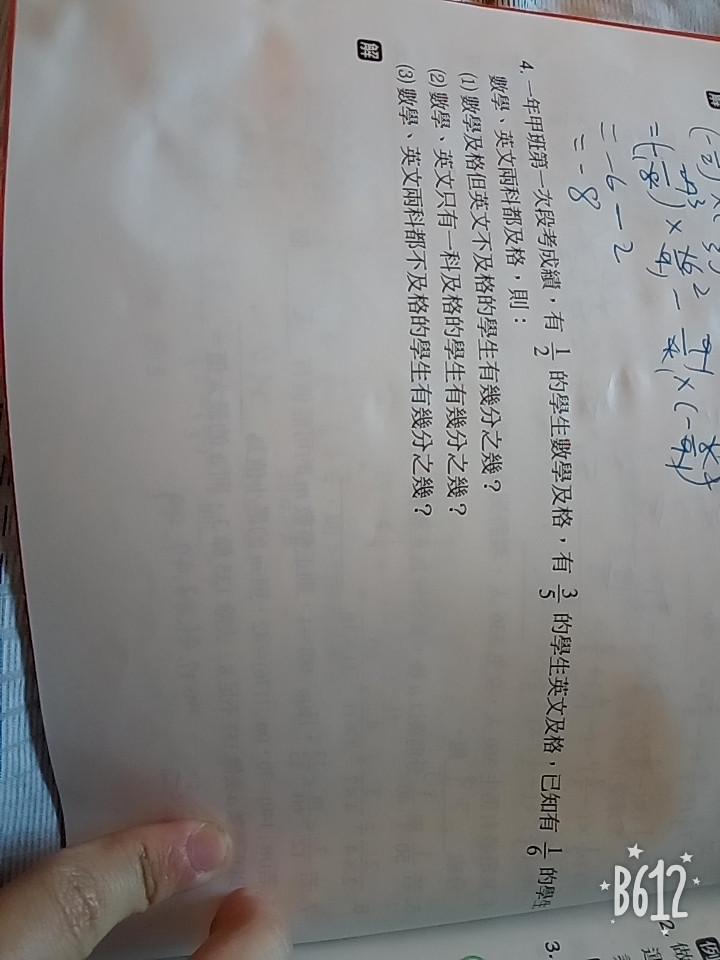 = -6 - 2
= -8
4. 一年甲班第一次段考成績，有 1/2 的學生數學及格，有 3/5 的學生英文及格，已知有 1/6 的學生
數學、英文兩科都及格，則：
(1) 數學及格但英文不及格的學生有幾分之幾？
(2) 數學、英文只有一科及格的學生有幾分之幾？
(3) 數學、英文兩科都不及格的學生有幾分之幾？
解
例
2. 做
3.
B612